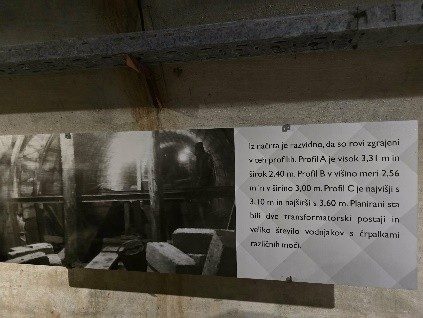 Iz načrta je razvidno, da so rovi zgrajeni
v treh profilih. Profil A je visok 3,31 m in
širok 2,40 m. Profil B v višino meri 2,56
m in v širino 3,00 m. Profil C je najvišji s
3,10 m in najširši s 3,60 m. Planirani sta
bili dve transformatorski postaji in
veliko število vodnjakov s črpalkami
različnih moči.